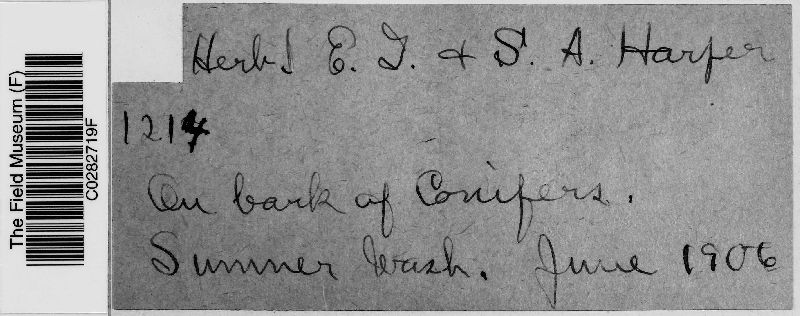 The Field Museum (F)
C0282719F
Herb! E. T. & S. A. Harper
1214
On bark of Conifers.
Sumner Wash. June 1906